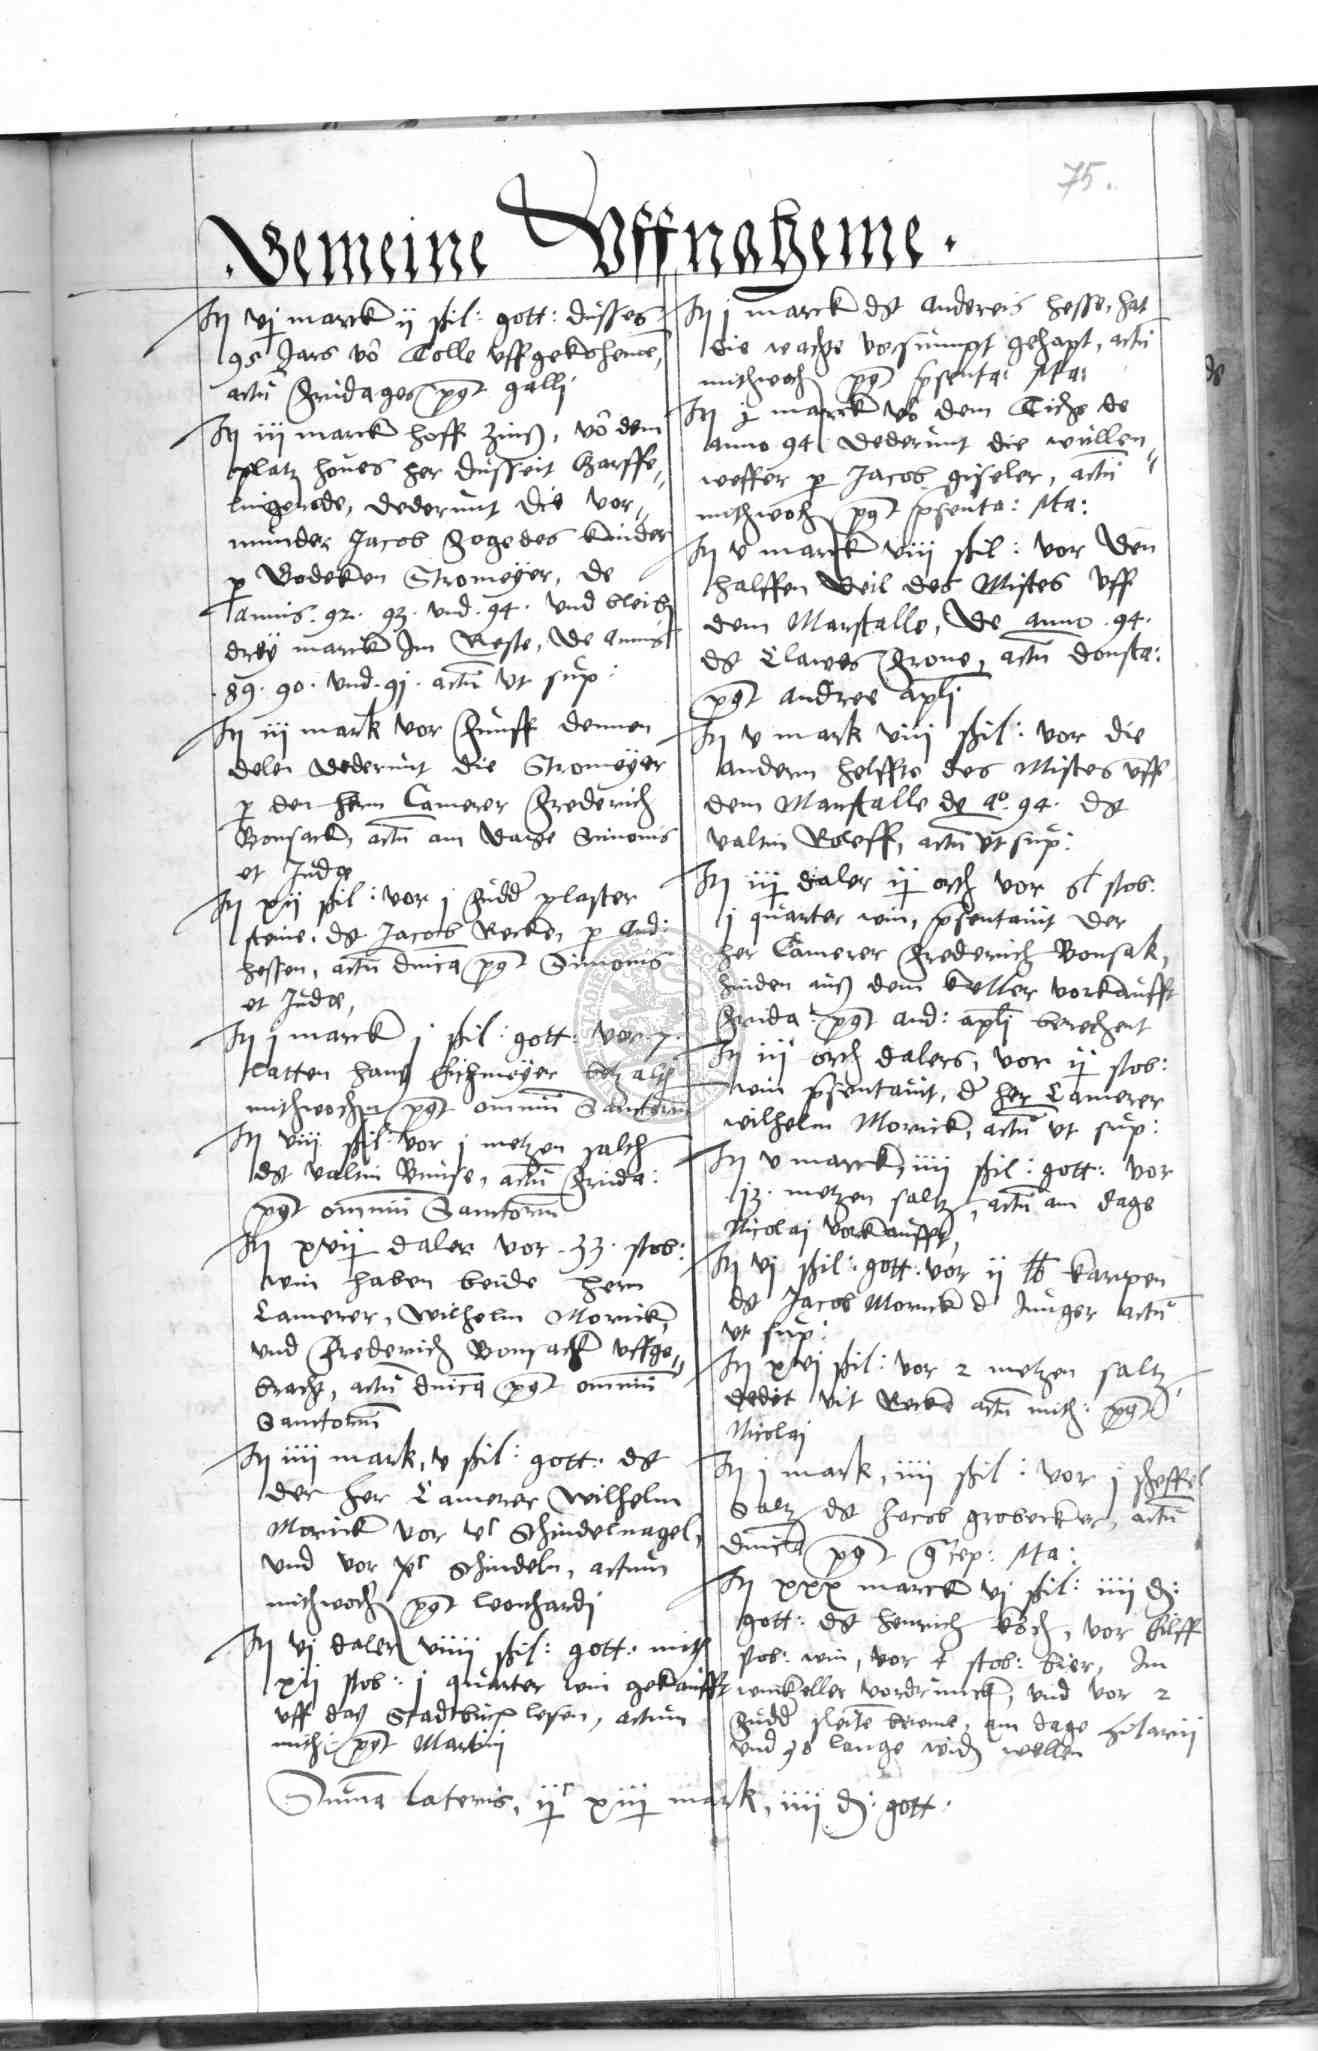 75.
Gemeine Uffnaheme.
It vj marck ij ßil: gott: dusses
95 Jars vō Tolle uffgekohemē,
actū fridages pꝰt galli
It iij marck hoff zinß, vō dem
platz houes her dusseit Harffe„
lingerode, dederunt die vor„
munder Jacob kinder
p Bodeken Stromeyer, de
annis. 92. 93. vnd. 94. vnd bleibt
drey marck Im Reste, de annis
. 89. 90. vnd. 91. actū vt sup:
It iij mark vor funff dennen
delen dederunt die Stromeyer
p den hern Camerer frederich
Bonsack, actū am dage Simonis
et Judæ
It xij ßil: vor j fudd plaster
steine, dt Jacob Recke, p And:
hessen, actū dnica pꝰt Simonis
et Judæ,
It j marck j ßil: gott: vor. 7.
latten hans betzalt
mithwochn pꝰt omniū Sanctorū
It viij ßil: vor j metzen saltz
dt valtin actū frida:
pꝰt omniū Sanctorū
It xvij daler vor. 33. stob:
win haben beide hern
Camerer, Wilhelm Morick,
vnd frederich Bonsack uffge„
bracht, actū dnica pꝰt omniū
Sanctorū
It iiij mark, v ßil: gott: dt
der her Camerer Wilhelm
Morick vor Schindelnagel,
vnd vor Schindeln, actum
mithwoch pꝰt leonhardi
It vj daler viiij ßil: gott: mith
xij stob: j quarter win gekaufft
uff das Stadtbuch lesen, actum
mith: pꝰt Martini
It j marck dt andereis hesse, hat
die wache vorsumpt gehapt, actū
mithwoch pꝰt psenta: Ma:
It j marck vō dem Tiche de
anno 94. dederunt die wullen„
weffer p Jacob giseler, actū
mithwoch pꝰt psenta: Ma:
It v marck viij ßil: vor den
halffen deil des Mistes uff
dem Marstalle, de anno. 94.
dt Clawes actū donsta:
pꝰt andree apli
It v mark viij ßil: vor die
andern helffte des Mistes uff
dem Marstalle de aō. 94. dt
valtin Roleff, actū vt sup:
It iij daler ij orth vor stob:
j quarter win, psentauit der
her Camerer frederich Bonsak,
hinden auß dem keller vorkaufft
frida: pꝰt and: apli berechent
It iij orth dalers, vor ij stob:
win psentauit, d her Camerer
wilhelm Morick, actū vt sup:
It v marck, iiij ßil: gott: vor
.13. metzen saltz, actū am dage
Nicolaj vorkaufft,
It vj ßil: gott: vor ij lb karpen
dt Jacob Morick d Junger actū
vt sup:
It xvj ßil: vor 2 metzen saltz,
dedit vit Recke actū mith: pꝰt
Nicolaj
It j mark, iiij ßil: vor j scheffel
Saltz dt Jacob grobecker, actū
dnica pꝰt Ma:
It xxx marck vj ßil: iiij d:
gott: dt henrich koch, vor
stob: win, vor 4 stob: bier, Im
winkeller vordrunckē, vnd vor 2
fudd am dage hilarij
vnd lange wellen
Suma lateris, xiij mark, iiij d: gott: